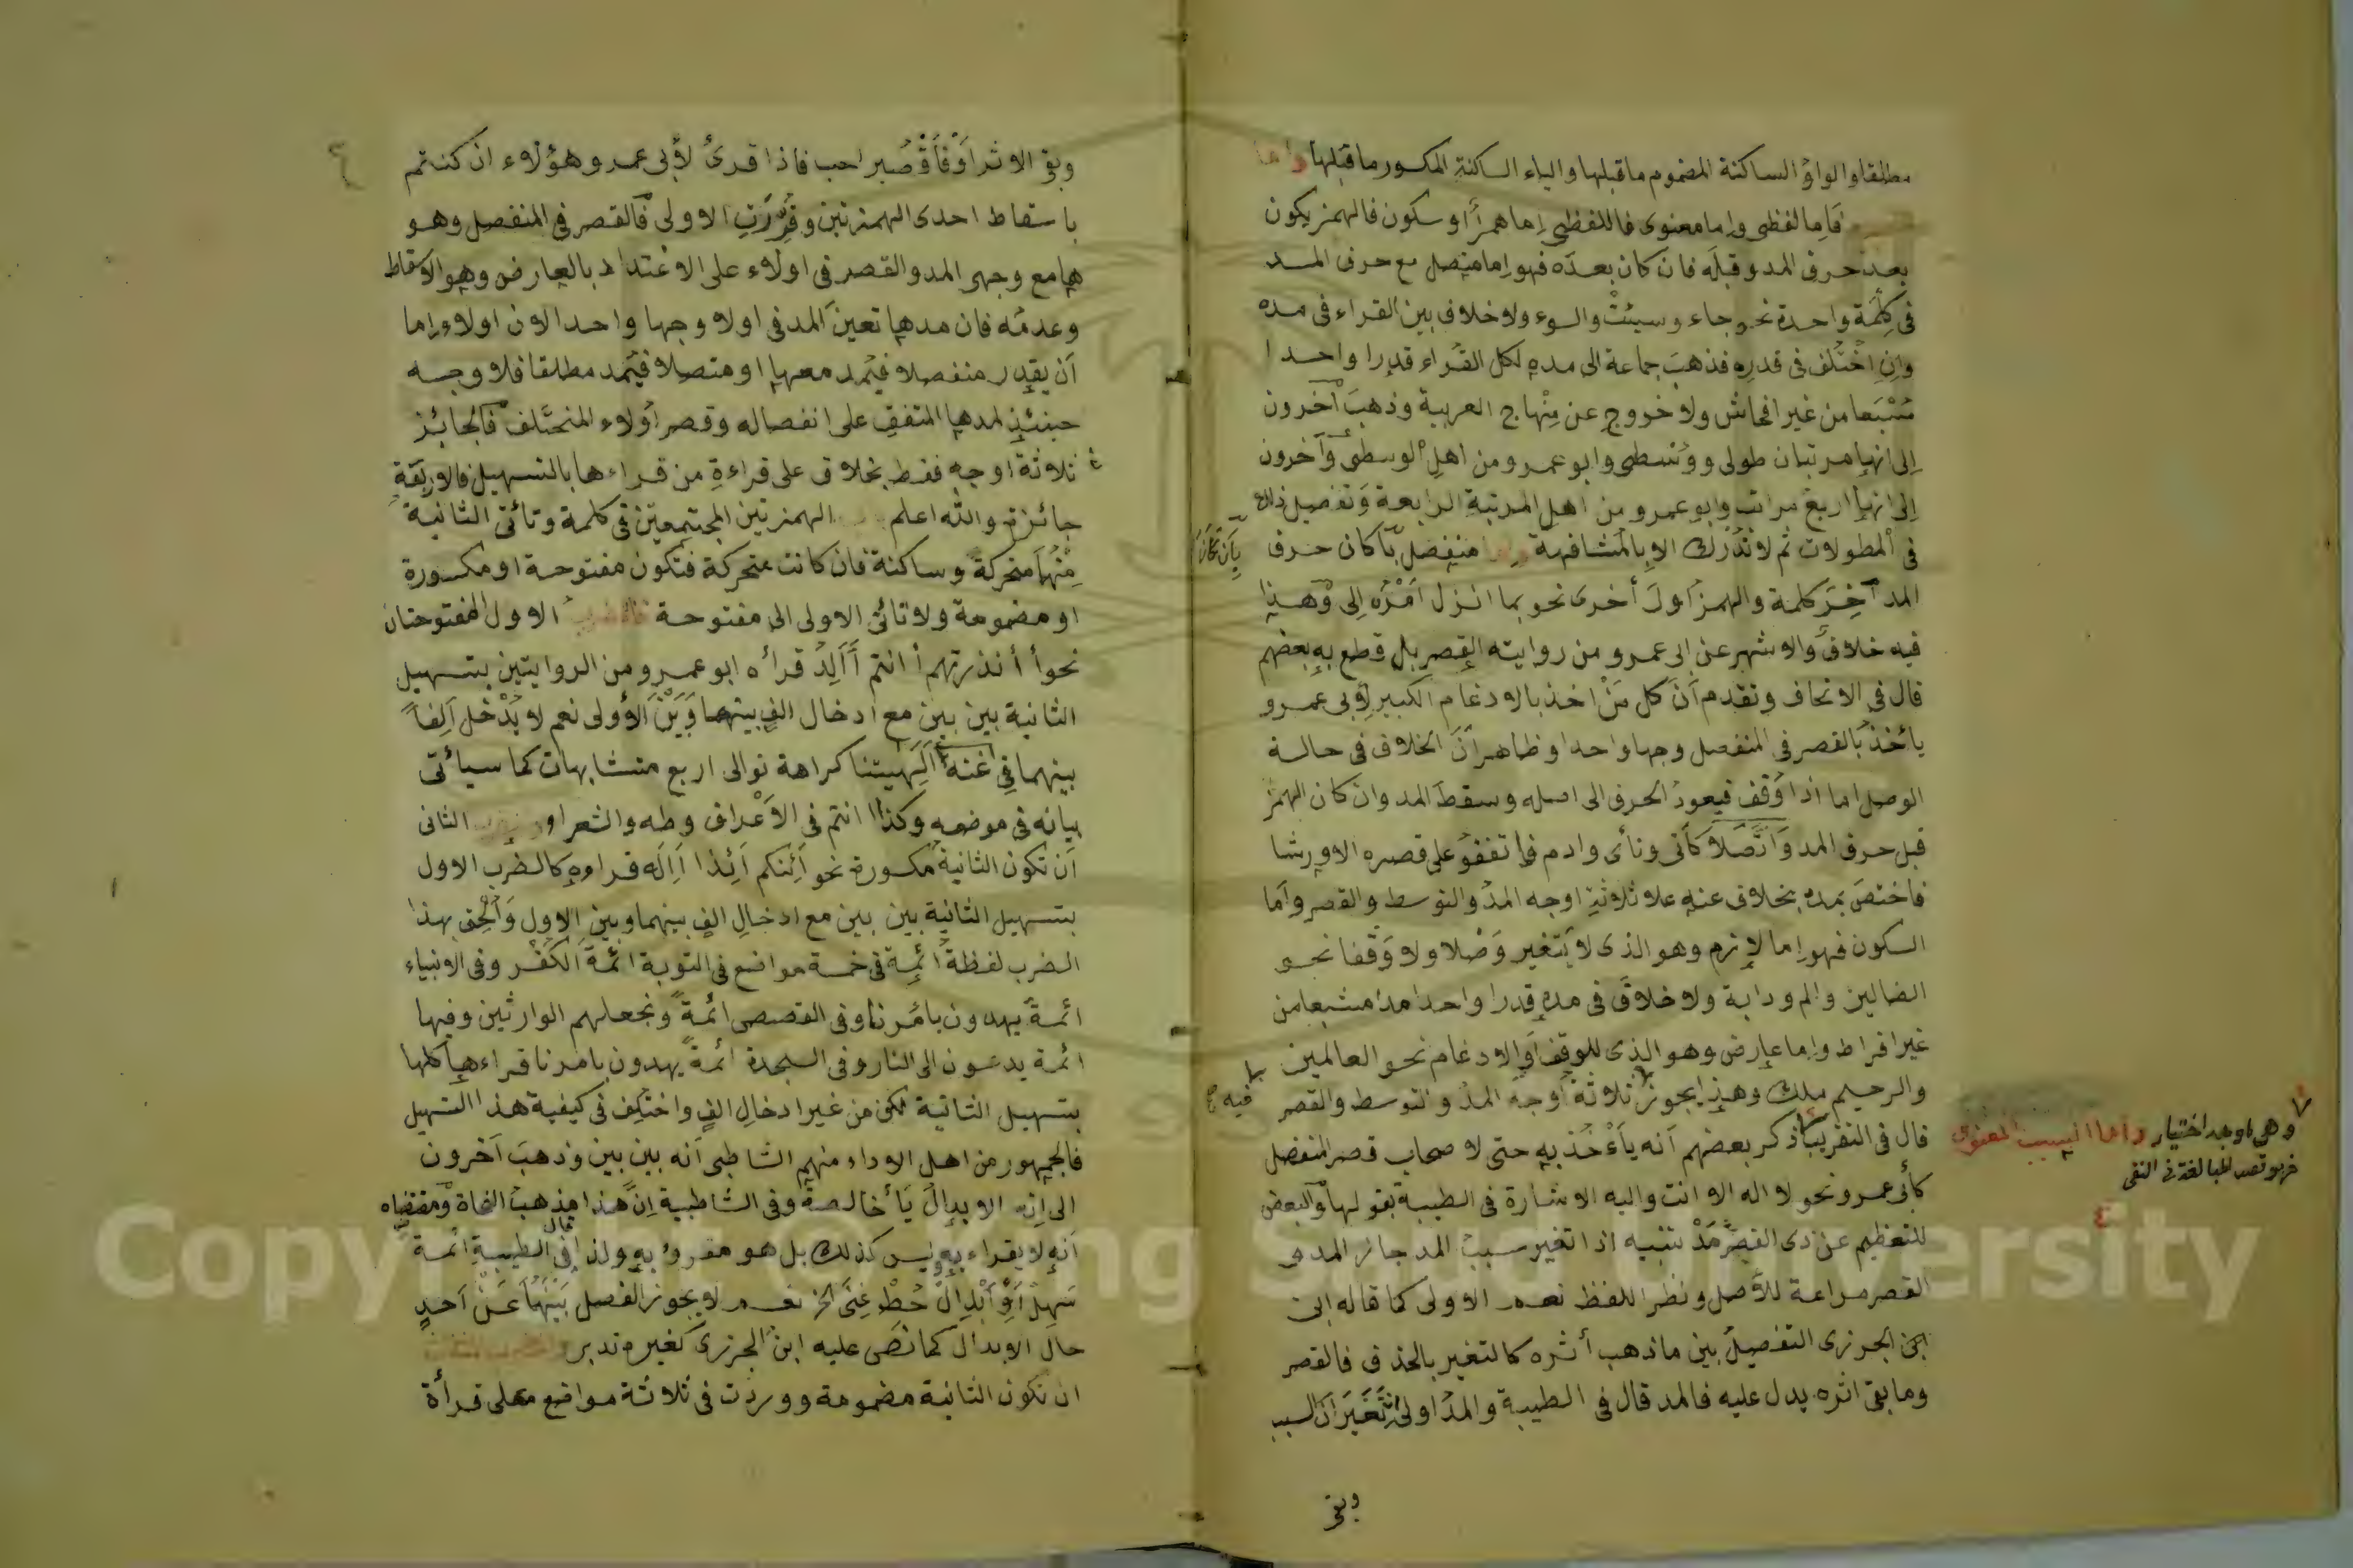 مطلقا والواو الساكنة المضموم ماقبلها والياء الساكنة المكسور ماقبلها واما
فاما لفظى واما معنوى فاللفظى إما همز أو سكون فالهمز يكون
بعد حرف المد وقبله فان كان بعده فهو إما متصل مع حرف المد
فى كلمة واحدة نحو جاء وسيئت والسوء ولا خلاف بين القراء فى مده
وإن اختلف فى قدره فذهب جماعة الى مده لكل القراء قدرا واحدا
مشبعا من غير افحاش ولا خروج عن منهاج العربية وذهب آخرون
إلى انها مرتبتان طولى ووسطى وابو عمرو من اهل الوسطى وآخرون
إلى انها اربع مراتب وابو عمرو من اهل المرتبة الرابعة وتفصيل ذلك
فى المطولات ثم لا تدرك الا بالمشافهة واما منفصل بأن كان حرف
بأن كان
المد آخر كلمة والهمز أول أخرى نحو بما انزل أمره إلى وهذا
فيه خلاف والاشهر عن ابى عمرو من روايته القصر بل قطع به بعضهم
قال فى الاتحاف وتقدم أن كل من اخذ بالادغام الكبير لأبى عمرو
يأخذ بالقصر فى المنفصل وجها واحدا وظاهر أن الخلاف فى حالة
الوصل اما اذا وقف فيعود الحرف الى اصله وسقط المد وان كان الهمز
قبل حرف المد واتصلا كأتى ونأى وادم فاتفقوا على قصره الا ورشا
فاختص بمده بخلاف عنه علا ثلاثة اوجه المد والتوسط والقصر وأما
السكون فهو إما لازم وهو الذى لا يتغير وصلا ولا وقفا نحو
الضالين والم ودابة ولا خلاف فى مده قدرا واحدا مدا مشبعا من
غير افراط وإما عارض وهو الذى للوقف او الادغام نحو العالمين
والرحيم ملك وهذا يجوز ثلاثة أوجه المد والتوسط والقصر
فيه صح
وهى اوجه اختيار واما السبب المعنوى
فهو قصد المبالغة فى النفى
قال فى التقريب ذكر بعضهم أنه يأخذ به حتى لاصحاب قصر المنفصل
كأبى عمرو نحو لا اله الا انت واليه الاشارة فى الطيبة بقولها والبعض
للتعظيم عن ذى القصر مد تنبيه اذا تغير سبب المد جاز المد و
القصر مراعة للأصل ونظرا للفظ نعم الاولى كما قاله ابن
ابن الجزرى التفصيل بين ما ذهب أثره كالتغير بالحذف فالقصر
وما بقى اثره يدل عليه فالمد قال فى الطيبة والمد اولى ان تغير السبب
وبقى
وبقى الاثر أو فاقصر احب فاذا قرئ لأبى عمرو هؤلاء ان كنتم
باسقاط احدى الهمزتين وقدرت الاولى فالقصر فى المنفصل وهو
ها مع وجهى المد والقصر فى اولاء على الاعتداد بالعارض وهو الاسقاط
وعدمه فان مدها تعين المد فى اولا وجها واحدا لان اولاء إما
أن يقدر منفصلا فيمد معها او متصلا فيمد مطلقا فلا وجه
حينئذ لمدها المتفق على انفصاله وقصر أولاء المختلف فالجائز
ثلاثة اوجه فقط بخلاف على قراءة من قراءها بالتسهيل فالاربعة
جائزة والله اعلم الهمزتين المجتمعتين فى كلمة وتأتى الثانية
منهما متحركة وساكنة فان كانت متحركة فتكون مفتوحة او مكسورة
او مضمومة ولا تأتى الاولى الا مفتوحة فالضرب الاول المفتوحتان
نحو أأنذرتهم أانتم أألد قرأه ابو عمرو من الروايتين بتسهيل
الثانية بين بين مع ادخال الف بينهما وبين الأولى نعم لا يدخل ألفا
بينهما فى أآلهيتنا كراهة توالى اربع متشابهات كما سيأتى
بيانه فى موضعه وكذا انتم فى الأعراف وطه والشعرا والضرب الثانى
أن تكون الثانية مكسورة نحو أئنكم أئذا أإله قراءه كالضرب الاول
بتسهيل الثانية بين بين مع ادخال الف بينهما وبين الاول وألحق بهذا
الضرب لفظة أئمة فى خمسة مواضع فى التوبة ائمة الكفر وفى الانبياء
ائمة يهدون بأمرنا وفى القصص ائمة ونجعلهم الوارثين وفيها
ائمة يدعون الى النار وفى السجدة ائمة يهدون بامرنا قراءها كلها
بتسهيل الثانية لكن من غير ادخال الف واختلف فى كيفية هذا التسهيل
فالجمهور من اهل الاداء منهم الشاطبى أنه بين بين وذهب آخرون
الى انه الابدال ياء خالصة وفى الشاطبية إن هذا مذهب النحاة ومقتضاه
أنه لا يقراء به وليس كذلك بل هو مقروء به ولذا قال فى الطيبة ائمة
سهل أو أبدل حط غنى الخ نعم لا يجوز الفصل بينهما عن أحد
حال الابدال كما نص عليه ابن الجزرى كغيره تدبر والضرب الثالث
ان تكون الثانية مضمومة ووردت فى ثلاثة مواضع على قرأة